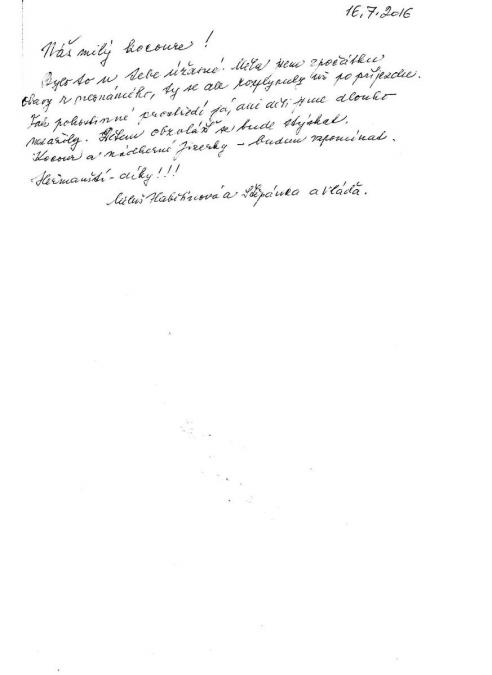 16.7.2016
Náš milý kocoure!
Bylo to u tebe úžasné. Měla jsem zpočátku
obavy z neznámého, ty se ale rozplynuly již po příjezdu.
Tak pohostinné prostředí já, ani děti jsme dlouho
nezažily. Dětem obzvlášť se bude stýskat.
Kocour a nádherné Jizerky - budem vzpomínat.
Heřmanští - díky!!!
a Štěpánka a Vláďa.